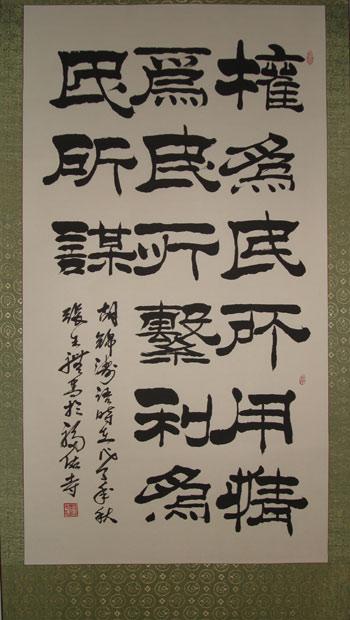 權爲民所用情
爲民所繫利爲
民所謀
胡錦濤語時在戊子年秋
張於福佑寺